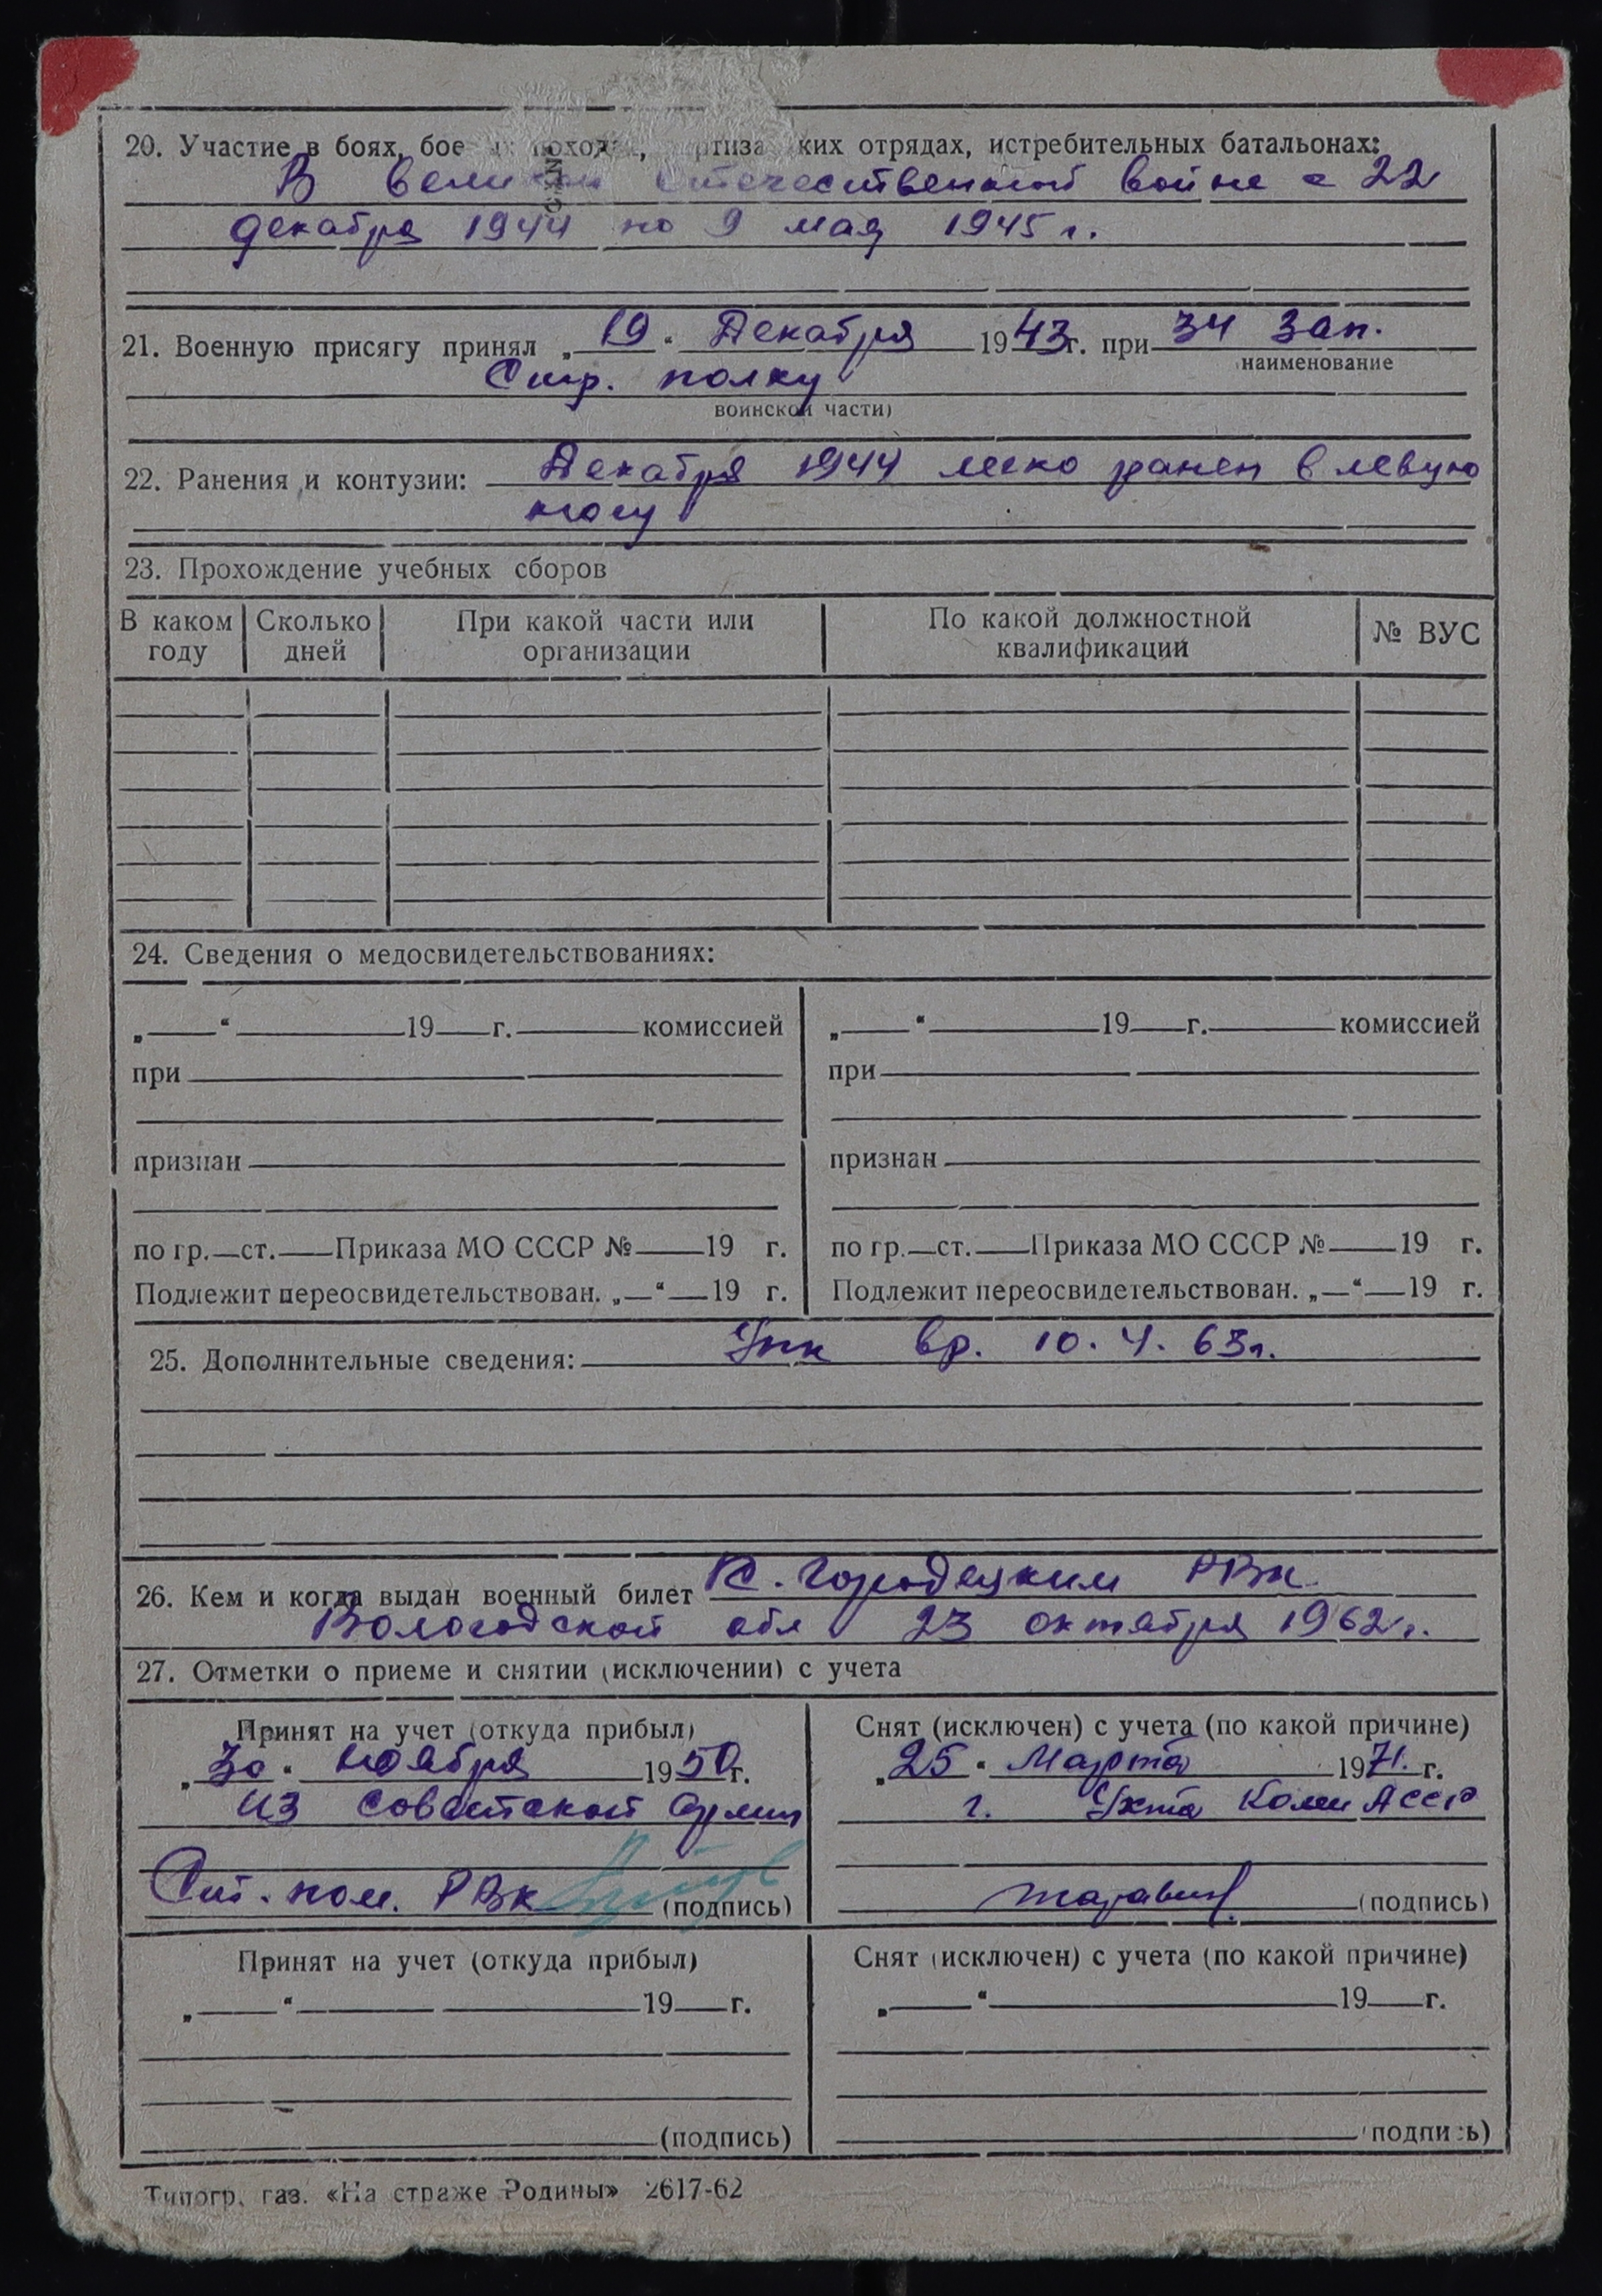 20. Участие в боях, бое походах, партизанских отрядах, истребительных батальонах:
В великой отечественной войне с 22
декабря 1944 по 9 мая 1945 г.
21. Военную присягу принял „19" Декабря 1943 г. при 34 Зап.
наименование
Стр. полку
воинской части)
22. Ранения и контузии: Декабря 1944 легко ранен в левую
ногу
23. Прохождение учебных сборов
В каком году | Сколько дней | При какой части или организации | По какой должностной квалификации | № ВУС
24. Сведения о медосвидетельствованиях:
„ " 19 г. комиссией
при
признан
по гр. ст. Приказа МО СССР № 19 г.
Подлежит переосвидетельствован. „ " 19 г.
„ " 19 г. комиссией
при
признан
по гр. ст. Приказа МО СССР № 19 г.
Подлежит переосвидетельствован. „ " 19 г.
25. Дополнительные сведения: вр. 10. 4. 63 г.
26. Кем и когда выдан военный билет К. Городецким РВК
Вологодской обл 23 октября 1962 г.
27. Отметки о приеме и снятии (исключении) с учета
Принят на учет (откуда прибыл)
„30" ноября 1950 г.
из Советской Армии
Ст. пом. РВК (подпись)
Снят (исключен) с учета (по какой причине)
„25" Марта 1971 г.
г. Ухта Коми АССР
(подпись)
Принят на учет (откуда прибыл)
„ " 19 г.
(подпись)
Снят (исключен) с учета (по какой причине)
„ " 19 г.
(подпись)
Типогр. газ. «На страже Родины» 2617-62